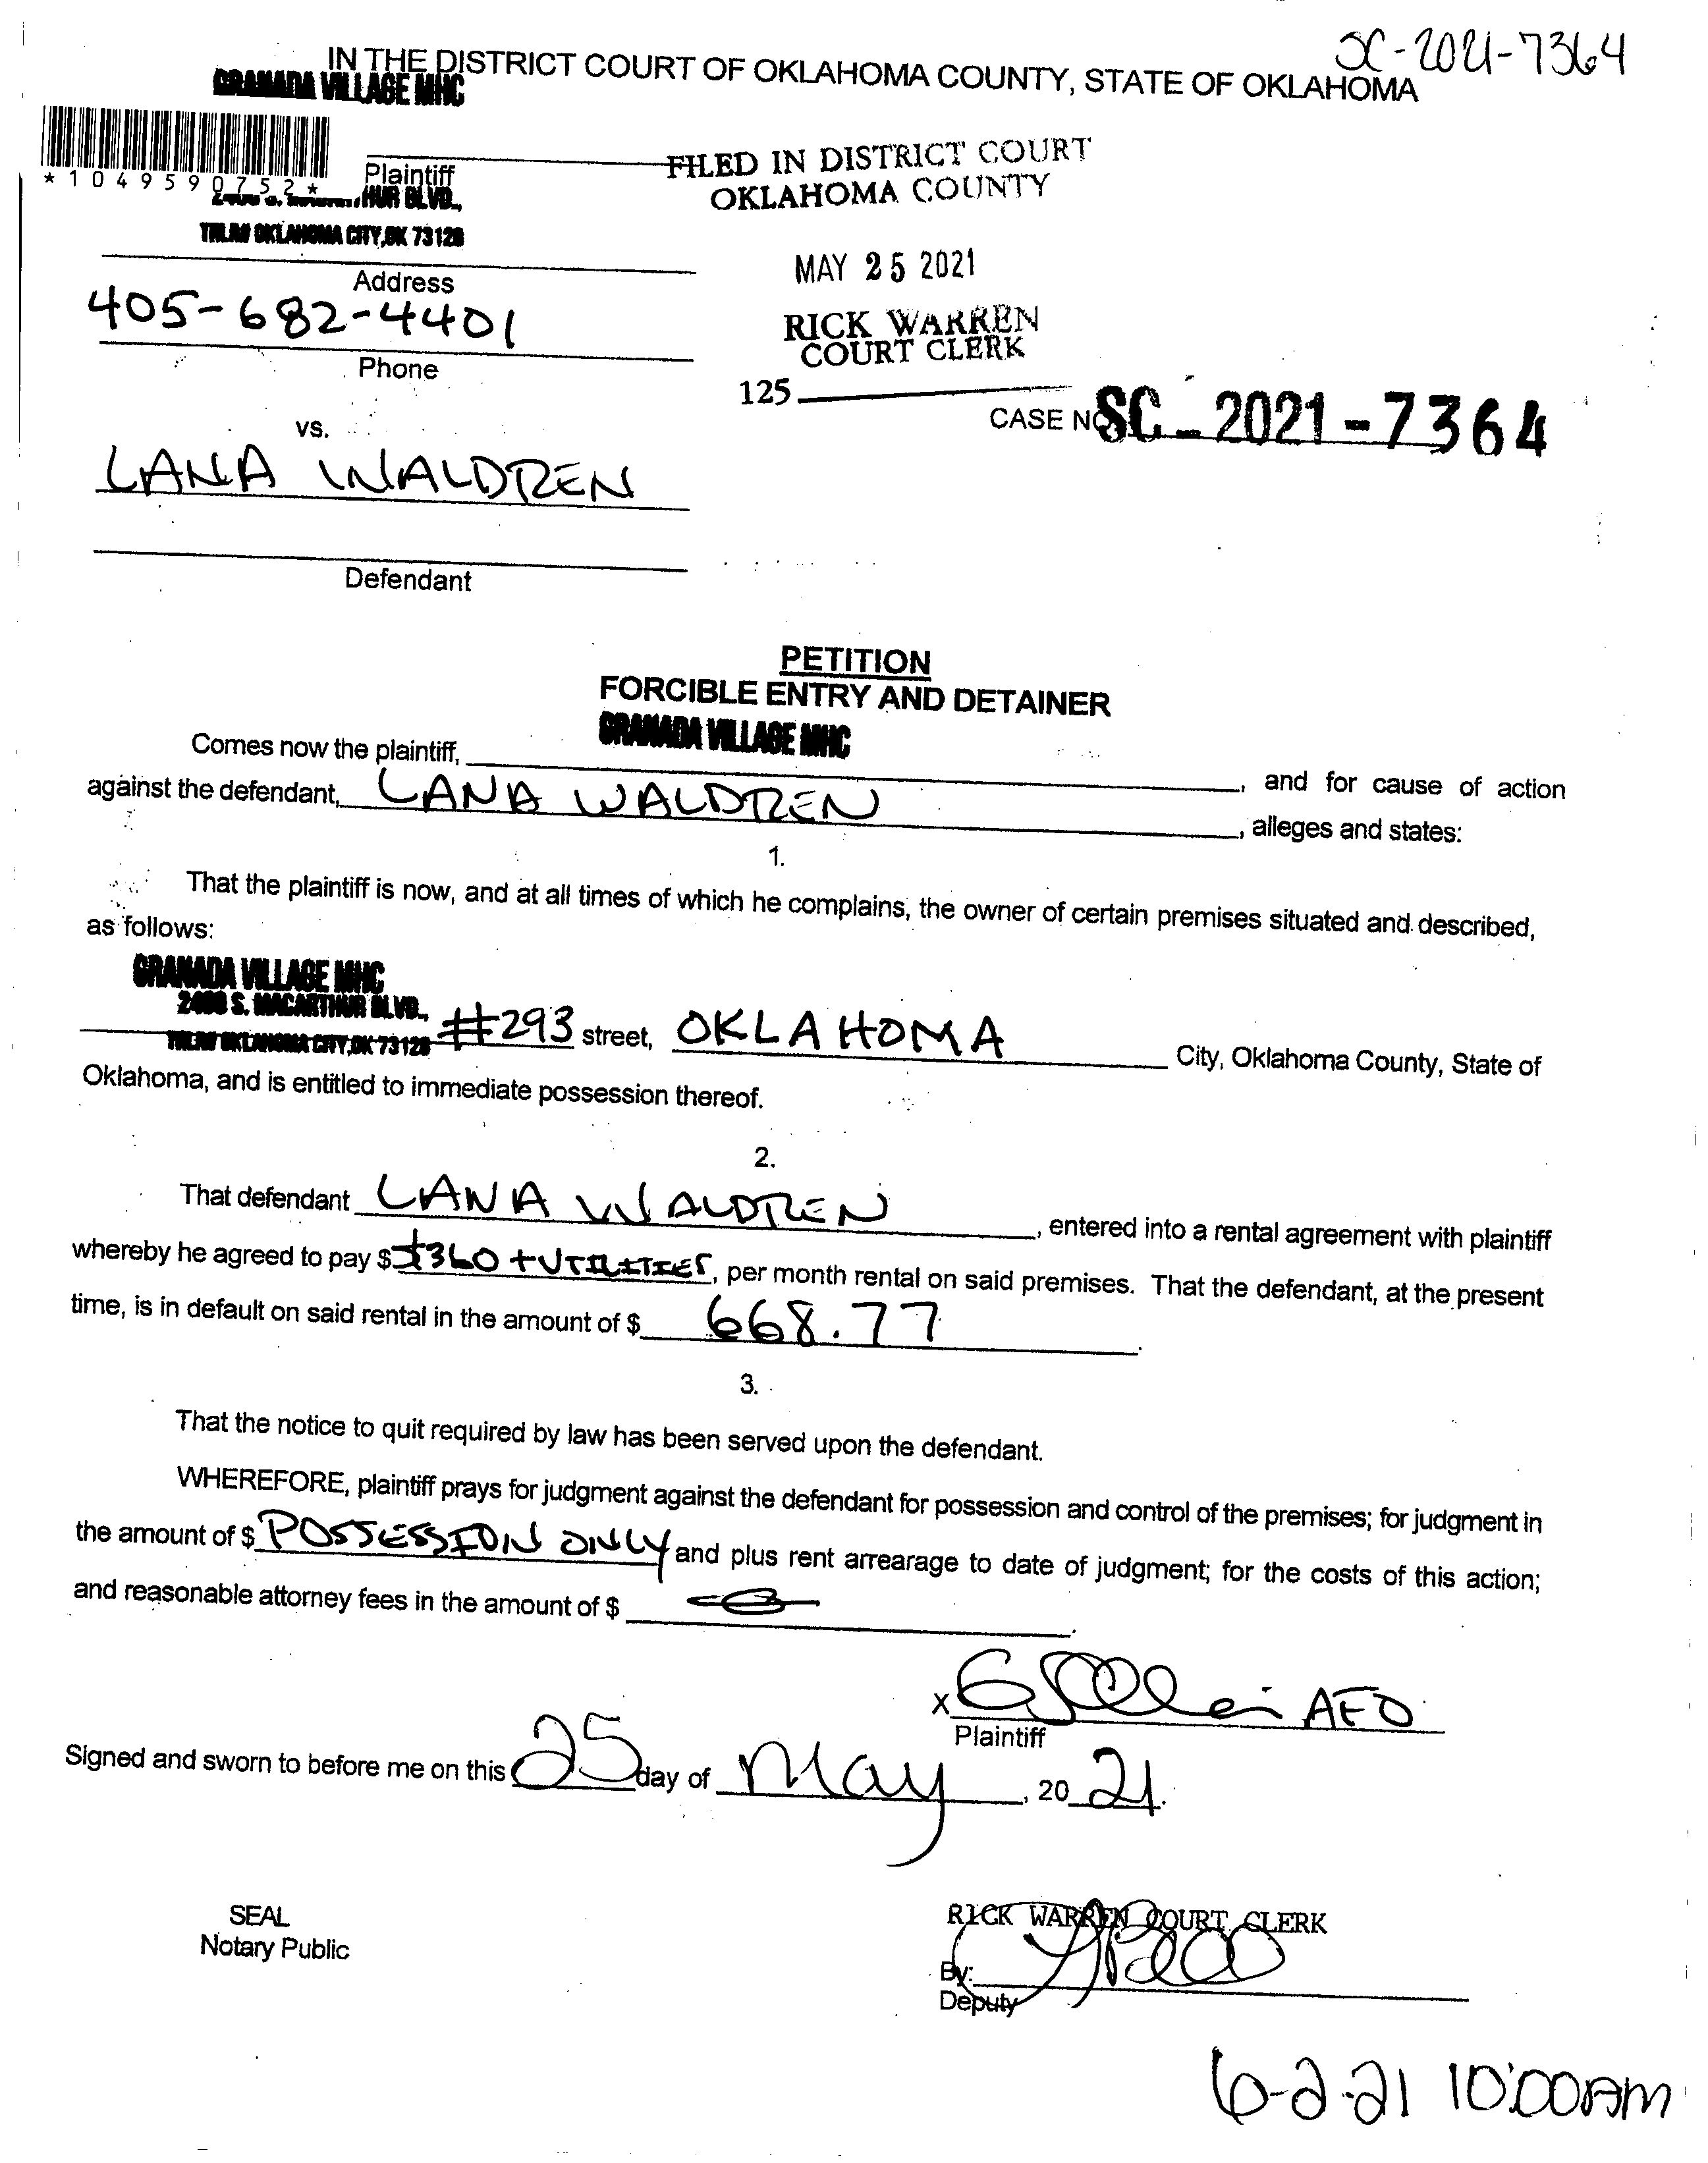 SC-2021-7364
IN THE DISTRICT COURT OF OKLAHOMA COUNTY, STATE OF OKLAHOMA
GRANADA VILLAGE MHC
*1049590752*
Plaintiff
HUR BLVD.,
OKLAHOMA CITY, OK 73128
Address
405-682-4401
Phone
FILED IN DISTRICT COURT
OKLAHOMA COUNTY
MAY 25 2021
RICK WARREN
COURT CLERK
125
CASE NO SC-2021-7364
vs.
LANA WALDREN
Defendant
PETITION
FORCIBLE ENTRY AND DETAINER
GRANADA VILLAGE MHC
Comes now the plaintiff, , and for cause of action
against the defendant, LANA WALDREN , alleges and states:
1.
That the plaintiff is now, and at all times of which he complains, the owner of certain premises situated and described,
as follows:
GRANADA VILLAGE MHC
2400 S. MACARTHUR BLVD.,
OKLAHOMA CITY, OK 73128 #293 street, OKLAHOMA City, Oklahoma County, State of
Oklahoma, and is entitled to immediate possession thereof.
2.
That defendant LANA WALDREN , entered into a rental agreement with plaintiff
whereby he agreed to pay $ $360 + UTILITIES, per month rental on said premises. That the defendant, at the present
time, is in default on said rental in the amount of $ 668.77.
3.
That the notice to quit required by law has been served upon the defendant.
WHEREFORE, plaintiff prays for judgment against the defendant for possession and control of the premises; for judgment in
the amount of $ POSSESSION ONLY and plus rent arrearage to date of judgment; for the costs of this action;
and reasonable attorney fees in the amount of $ .
X
Plaintiff
Signed and sworn to before me on this 25 day of May, 20 21.
SEAL
Notary Public
RICK WARREN COURT CLERK
By:
Deputy
6-2-21 10:00AM